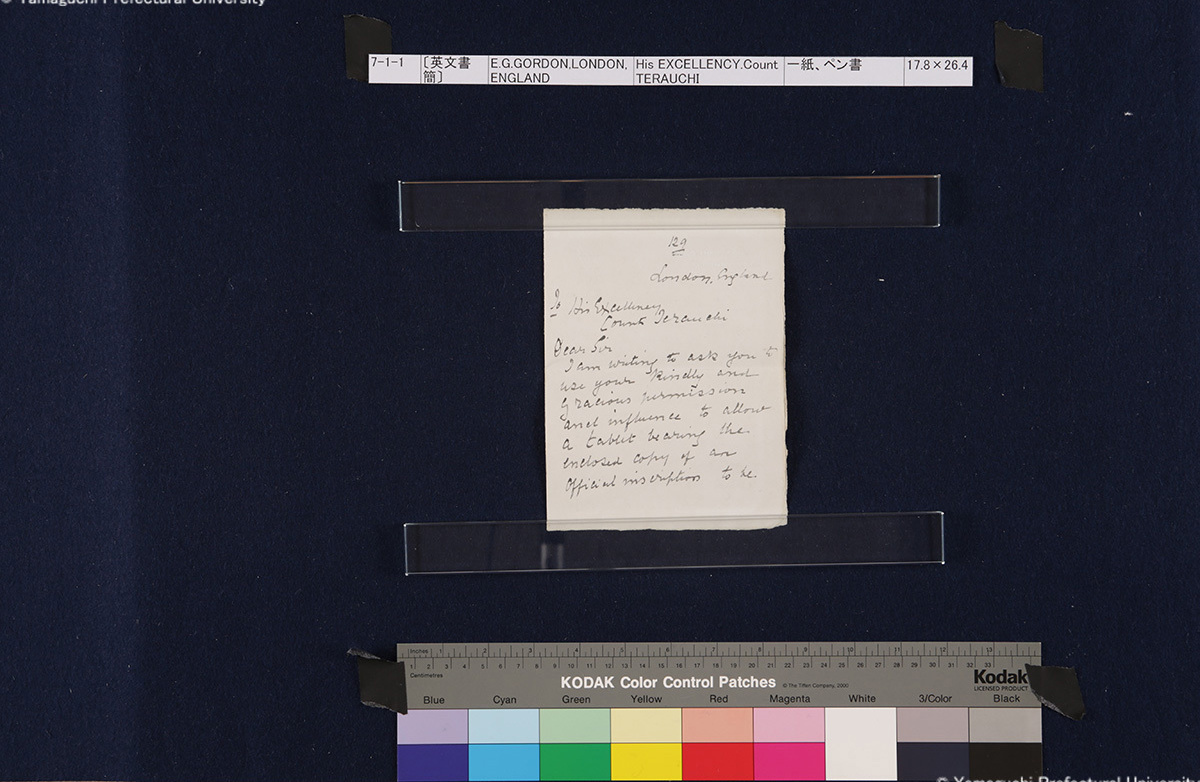 © Yamaguchi Prefectural University
7-1-1 〔英文書簡〕 E.G.GORDON,LONDON,ENGLAND His EXCELLENCY.Count TERAUCHI 一紙、ペン書 17.8×26.4
129
London, England
To His Excellency
Count Terauchi
Dear Sir
I am writing to ask you to
use your kindly and
gracious permission
and influence to allow
a tablet bearing the
enclosed copy of an
Official inscription to be.
Inches 1 2 3 4 5 6 7 8 9 10 11 12 13
1 2 3 4 5 6 7 8 9 10 11 12 13 14 15 16 17 18 19 20 21 22 23 24 25 26 27 28 29 30 31 32 33
Centimetres
KODAK Color Control Patches © The Tiffen Company, 2000 Kodak
LICENSED PRODUCT
Blue Cyan Green Yellow Red Magenta White 3/Color Black
© Yamaguchi Prefectural University